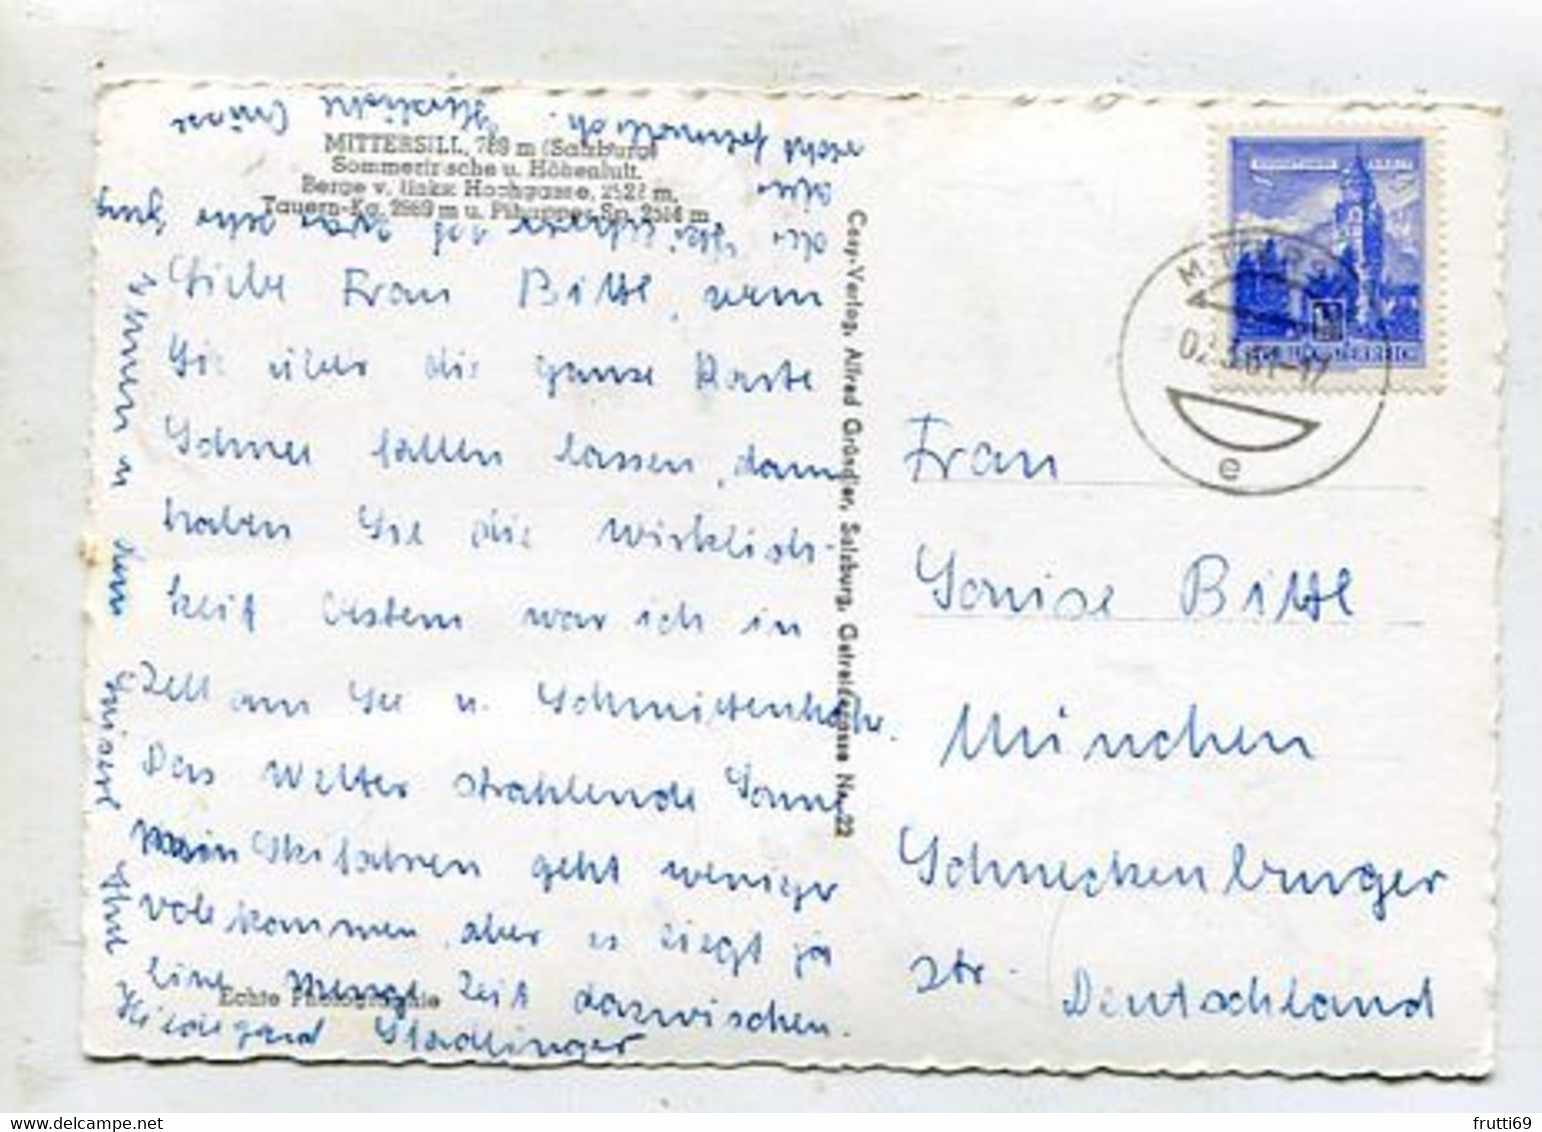 MITTERSILL, 789 m (Salzburg)
Sommerfrische u. Höhenluft.
Berge v. links: Hochgasse, 2522 m,
Tauern-Kg. 2989 m u. Pihapper Sp. 2514 m
Liebe Frau Bittl, wenn
Sie über die ganze Karte
Schnee fallen lassen, dann
haben Sie die Wirklich-
keit Gestern war ich in
Zell am See u. Schmittenhöhe.
Das Wetter strahlende Sonne
mein Skifahren geht weniger
vollkommen, aber es liegt ja
eine Menge Zeit dazwischen.
der Skilehrer ist zwar sehr
aber
recht Herzliche Grüsse
Ihnen u. dem
Ihre
Hildegard Stadlinger
Echte Photographie
Cosy-Verlag, Alfred Gründler, Salzburg, Getreidegasse Nr. 22
MITTERSILL
e
Frau
Louise Bittl
München
Schneckenburger
str. Deutschland
frutti69